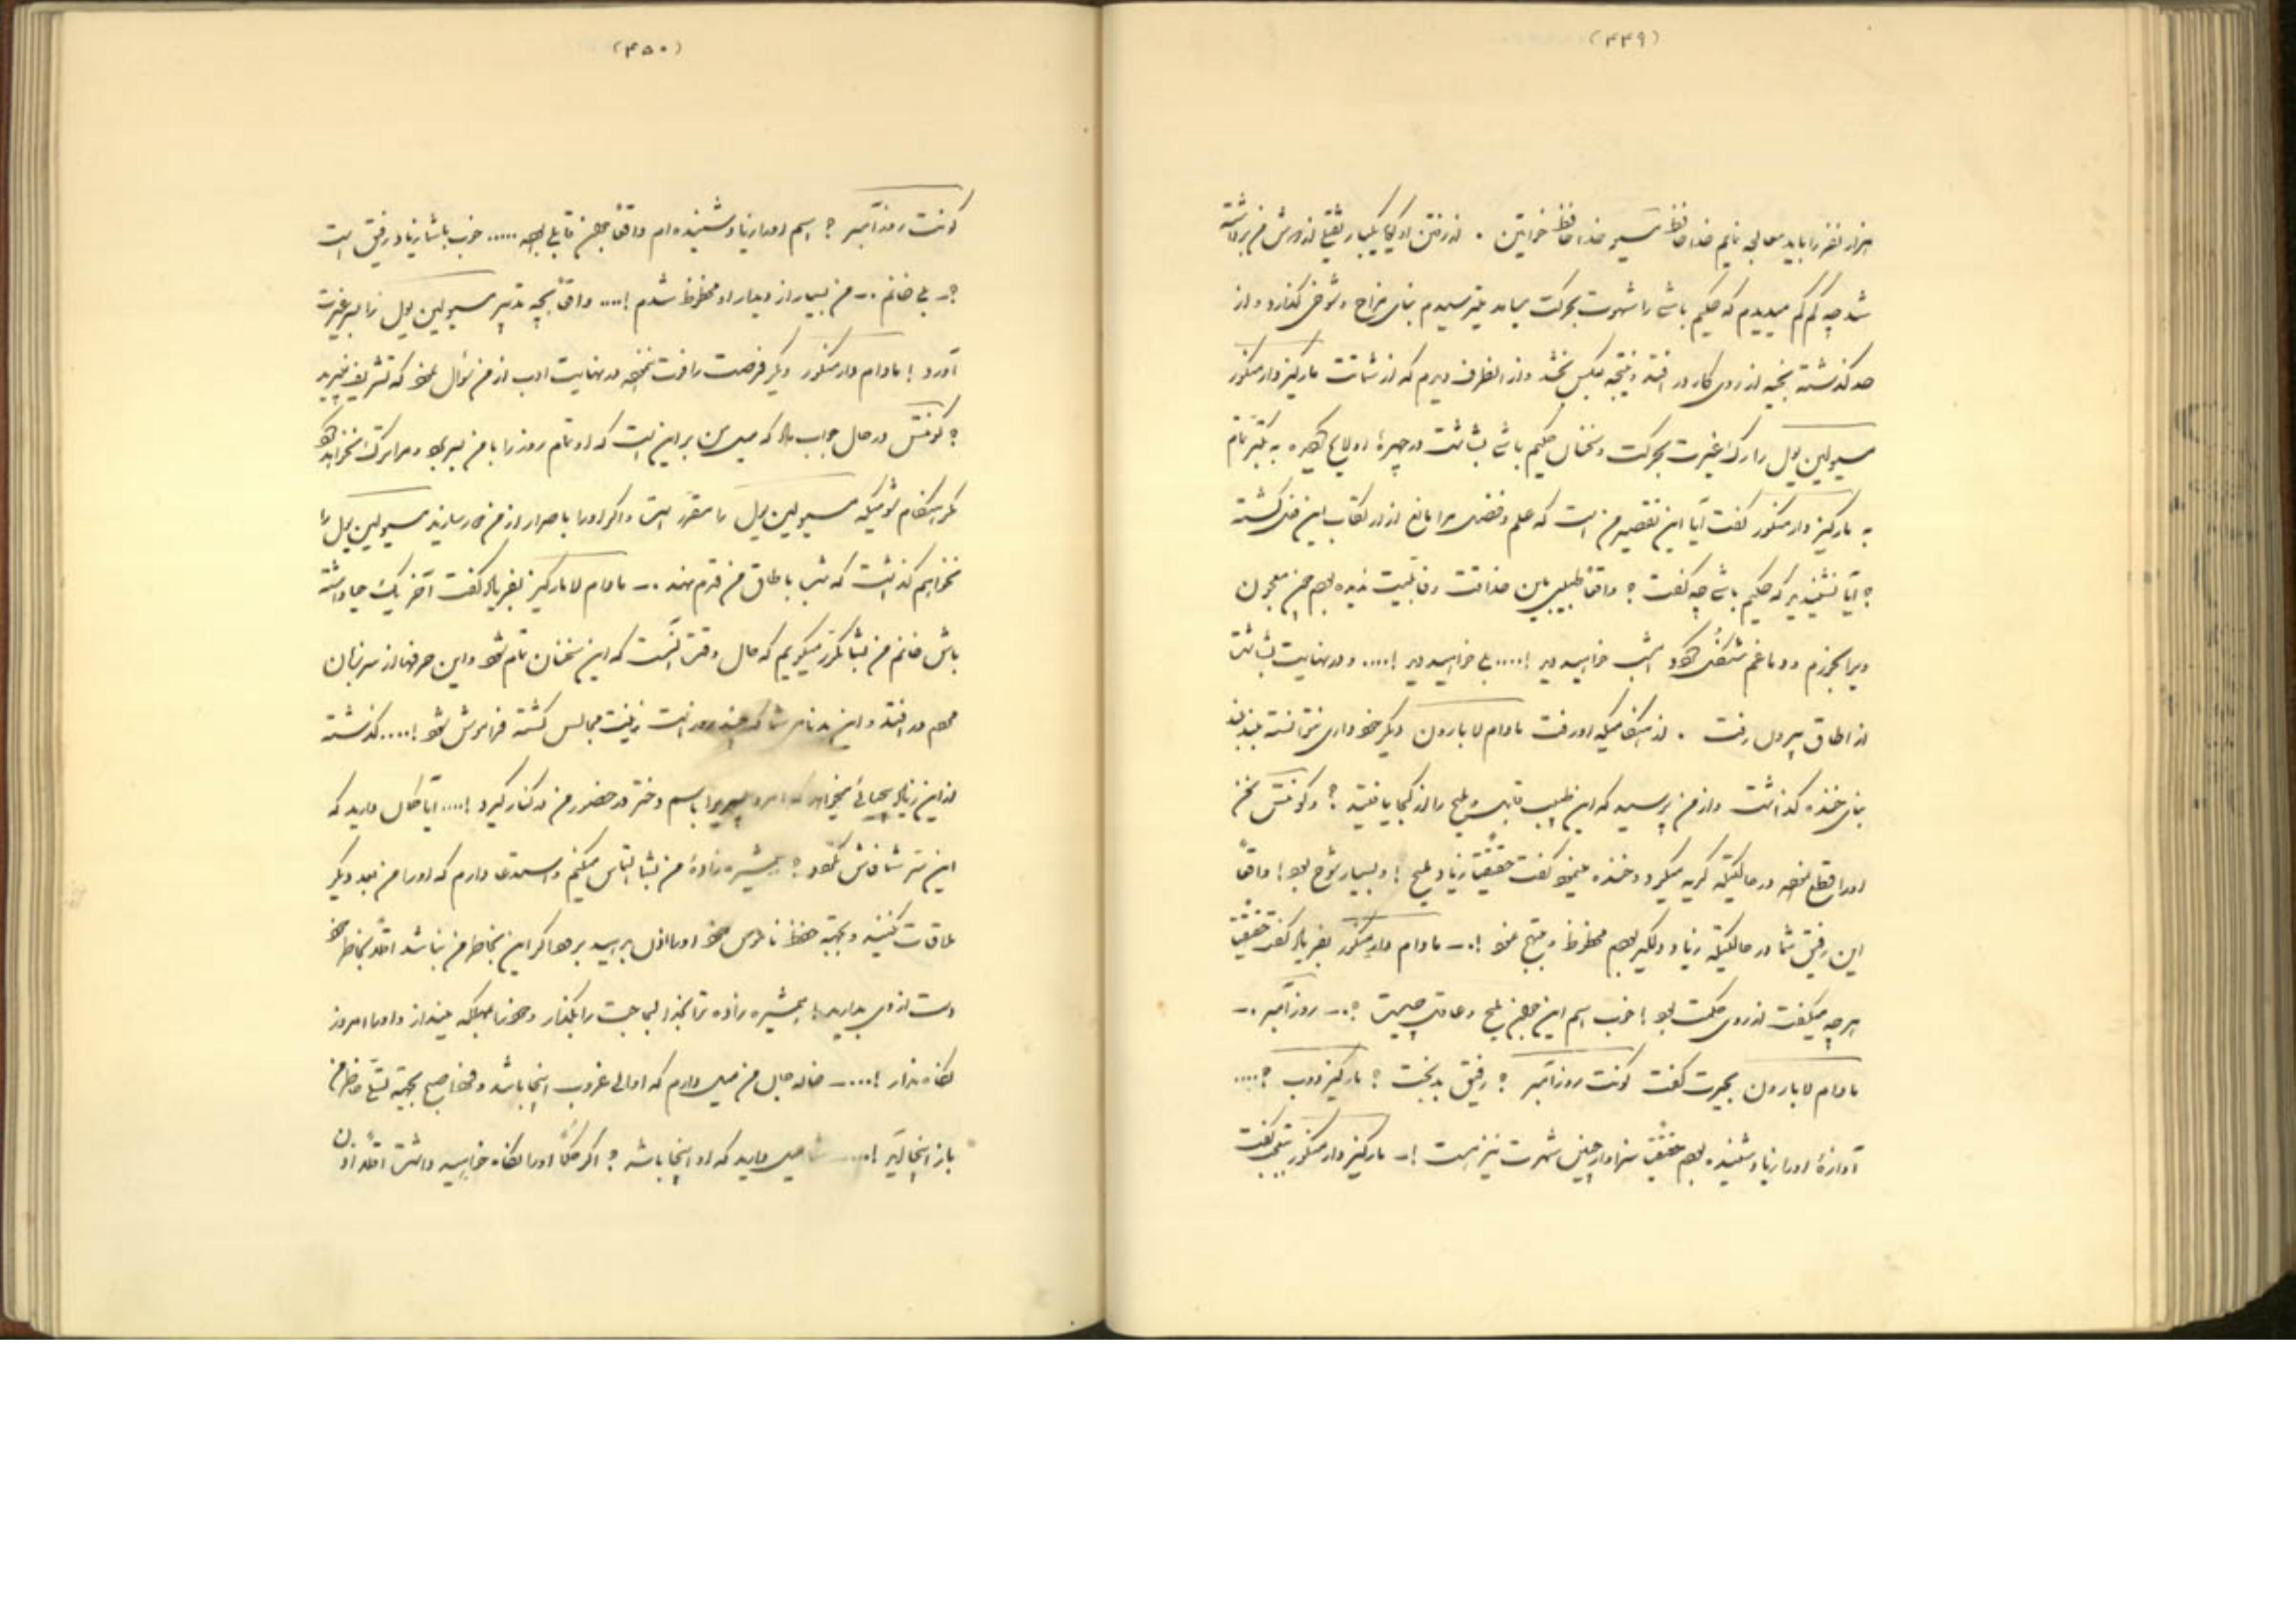 (۴۴۹)
هزار نفر را باید معالجه نمایم خداحافظ مسیو خداحافظ خواتین . از رفتن او گویا یکبار ثقیلی از دوش من برداشته
شد چه کم کم میدیدم که حکیم باشی را شهوت بحرکت میاید میترسیدم بنای مزاح و شوخی گذارد و از
حد گذشته بخیه از روی کار در افتد و نتیجه بعکس بخشد و از انطرف دیدم که از شماتت مارکیز دارمنکور
مسیو لین یول را رگ غیرت بحرکت و سخنان حکیم باشی بشاشت در چهرهٔ او لایح گردیده به تکبر تمام
به مارکیز دارمنکور گفت آیا این تقصیر من است که علم و فضل مرا مانع از ارتکاب این فن گشته
؟ آیا نشنیدید که حکیم باشی چه گفت ؟ واقعاً طبیبی باین حذاقت و قابلیت ندیده بودم من معجون
ویرا بخورم و دماغم شکفته گردد امشب خواهید دید !.... بلی خواهید دید !.... و در نهایت بشاشت
از اطاق بیرون رفت . از هنگامیکه او رفت مادام لابارون دیگر خودداری نتوانسته بلند بلند
بنای خنده گذاشت و از من پرسید که این طبیب قابل و ملیح را از کجا یافتید ؟ و کونتس سخن
او را قطع نموده در حالتیکه گریه میکرد و خنده مینمود گفت حقیقتاً زیاد ملیح ! و بسیار شوخ بود ! واقعاً
این رفیق شما در حالتیکه زیاد دلگیر بودم محظوظ و مبتهج نمود !.ــ مادام دارمنکور بفریاد گفت حقیقتاً
هر چه میگفت از روی حکمت بود ! خوب اسم این جوان ملیح و عاقل چیست ؟.ــ روزآمبر .ــ
مادام لابارون بحیرت گفت کونت روزآمبر ؟ رفیق بدبخت ؟ مارکیز دوب ؟....
آوازهٔ او را زیاد شنیده بودم حقیقتاً سزاوار چنین شهرت نیز هست !.ــ مارکیز دارمنکور بتعجب گفت
(۴۵۰)
کونت روزآمبر ؟ اسم او را زیاد شنیده ام واقعاً جوان قابلی بوده ..... خوب با شما زیاد رفیق است
؟ــ بلی خانم .ــ من بسیار از دیدار او محظوظ شدم !.... واقعاً بچه تدبیر مسیو لین یول را بسر غیرت
آورد ! مادام دارمنکور دیگر فرصت را فوت ننموده در نهایت ادب از من سؤال نمود که تشریف میبرید
؟ کونتس در حال جواب داد که میل من بر این است که او تمام روز را با من بسر برد و مرا ترک نخواهد کرد
مگر هنگام شومیکه مسیو لین یول را مقرر است و اگر او را باصرار از من دور سازید مسیو لین یول را
نخواهم گذاشت که شب باطاق من قدم نهد .ــ مادام لامارکیز بفریاد گفت آخر یک حیا داشته
باش خانم من بشما مکرر میگویم که حال وقت آنست که این سخنان تمام شود و این حرفها از سر زبان
مردم در افتد و این بدنامی شما که چند روز است زینت مجالس گشته فراموش شود !.... گذشته
از این زیاد بیحیائی میخواهد که امرد پسریرا باسم دختر در حضور من در کنار گیرد !.... آیا خیال دارید که
این سر شما فاش نگردد ؟ همشیره زادهٔ من بشما التماس میکنم و استدعا دارم که او را من بعد دیگر
ملاقات نکنید و بجهة حفظ ناموس خود او را اذن مرخصی بدهد اگر این بخاطر من نباشد اقلاً بخاطر خود
دست از وی بدارید ! همشیره زاده ترا بخدا لجاجت را بکنار و خود را بمهلکه مینداز و او را امروز
نگاه مدار !....ــ خاله جان من میل دارم که او الی غروب اینجا باشد و فردا صبح بجهة تسلی خاطر من
باز اینجا آید !....ــ شما میل دارید که او اینجا باشد ؟ اگر حکماً او را نگاه خواهید داشت اقلاً او